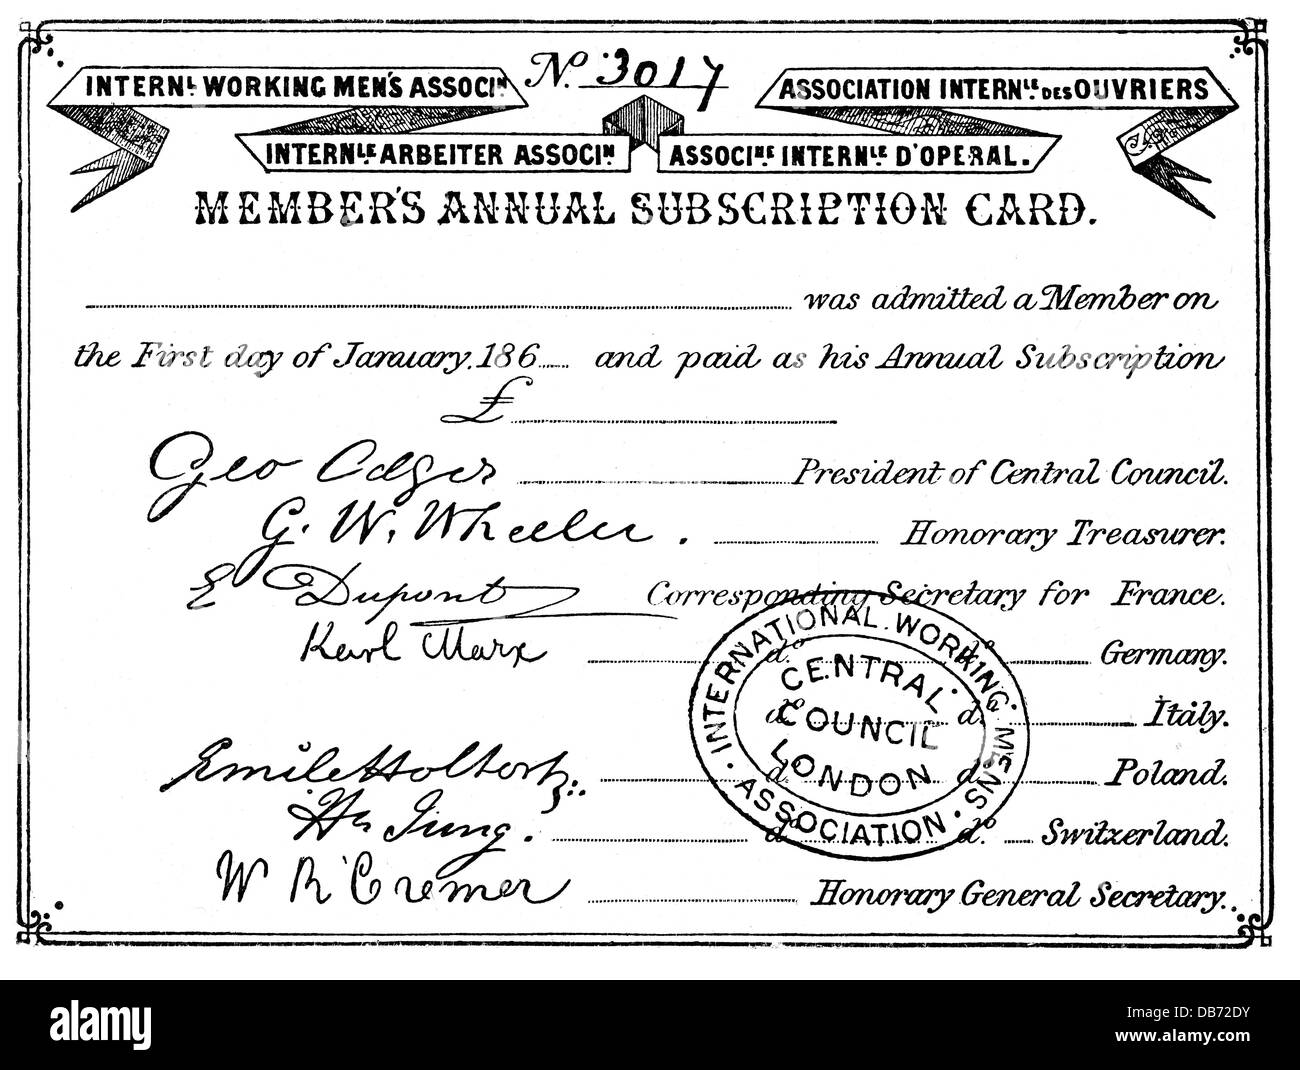 Nº 3017
INTERNL WORKING MEN'S ASSOCIN
ASSOCIATION INTERNLE DES OUVRIERS
INTERNLE ARBEITER ASSOCIN
ASSOCINE INTERNLE D'OPERAL.
MEMBER'S ANNUAL SUBSCRIPTION CARD.
was admitted a Member on
the First day of January, 186 and paid as his Annual Subscription
£
Geo Odger President of Central Council.
G. W. Wheeler. Honorary Treasurer.
E Dupont Corresponding Secretary for France.
Karl Marx do do Germany.
do do Italy.
Emile Holtorp do do Poland.
Hn Jung. do do Switzerland.
W R Cremer Honorary General Secretary.
INTERNATIONAL WORKING MENS ASSOCIATION
CENTRAL
COUNCIL
LONDON
alamy
Image ID: DB72DY
www.alamy.com